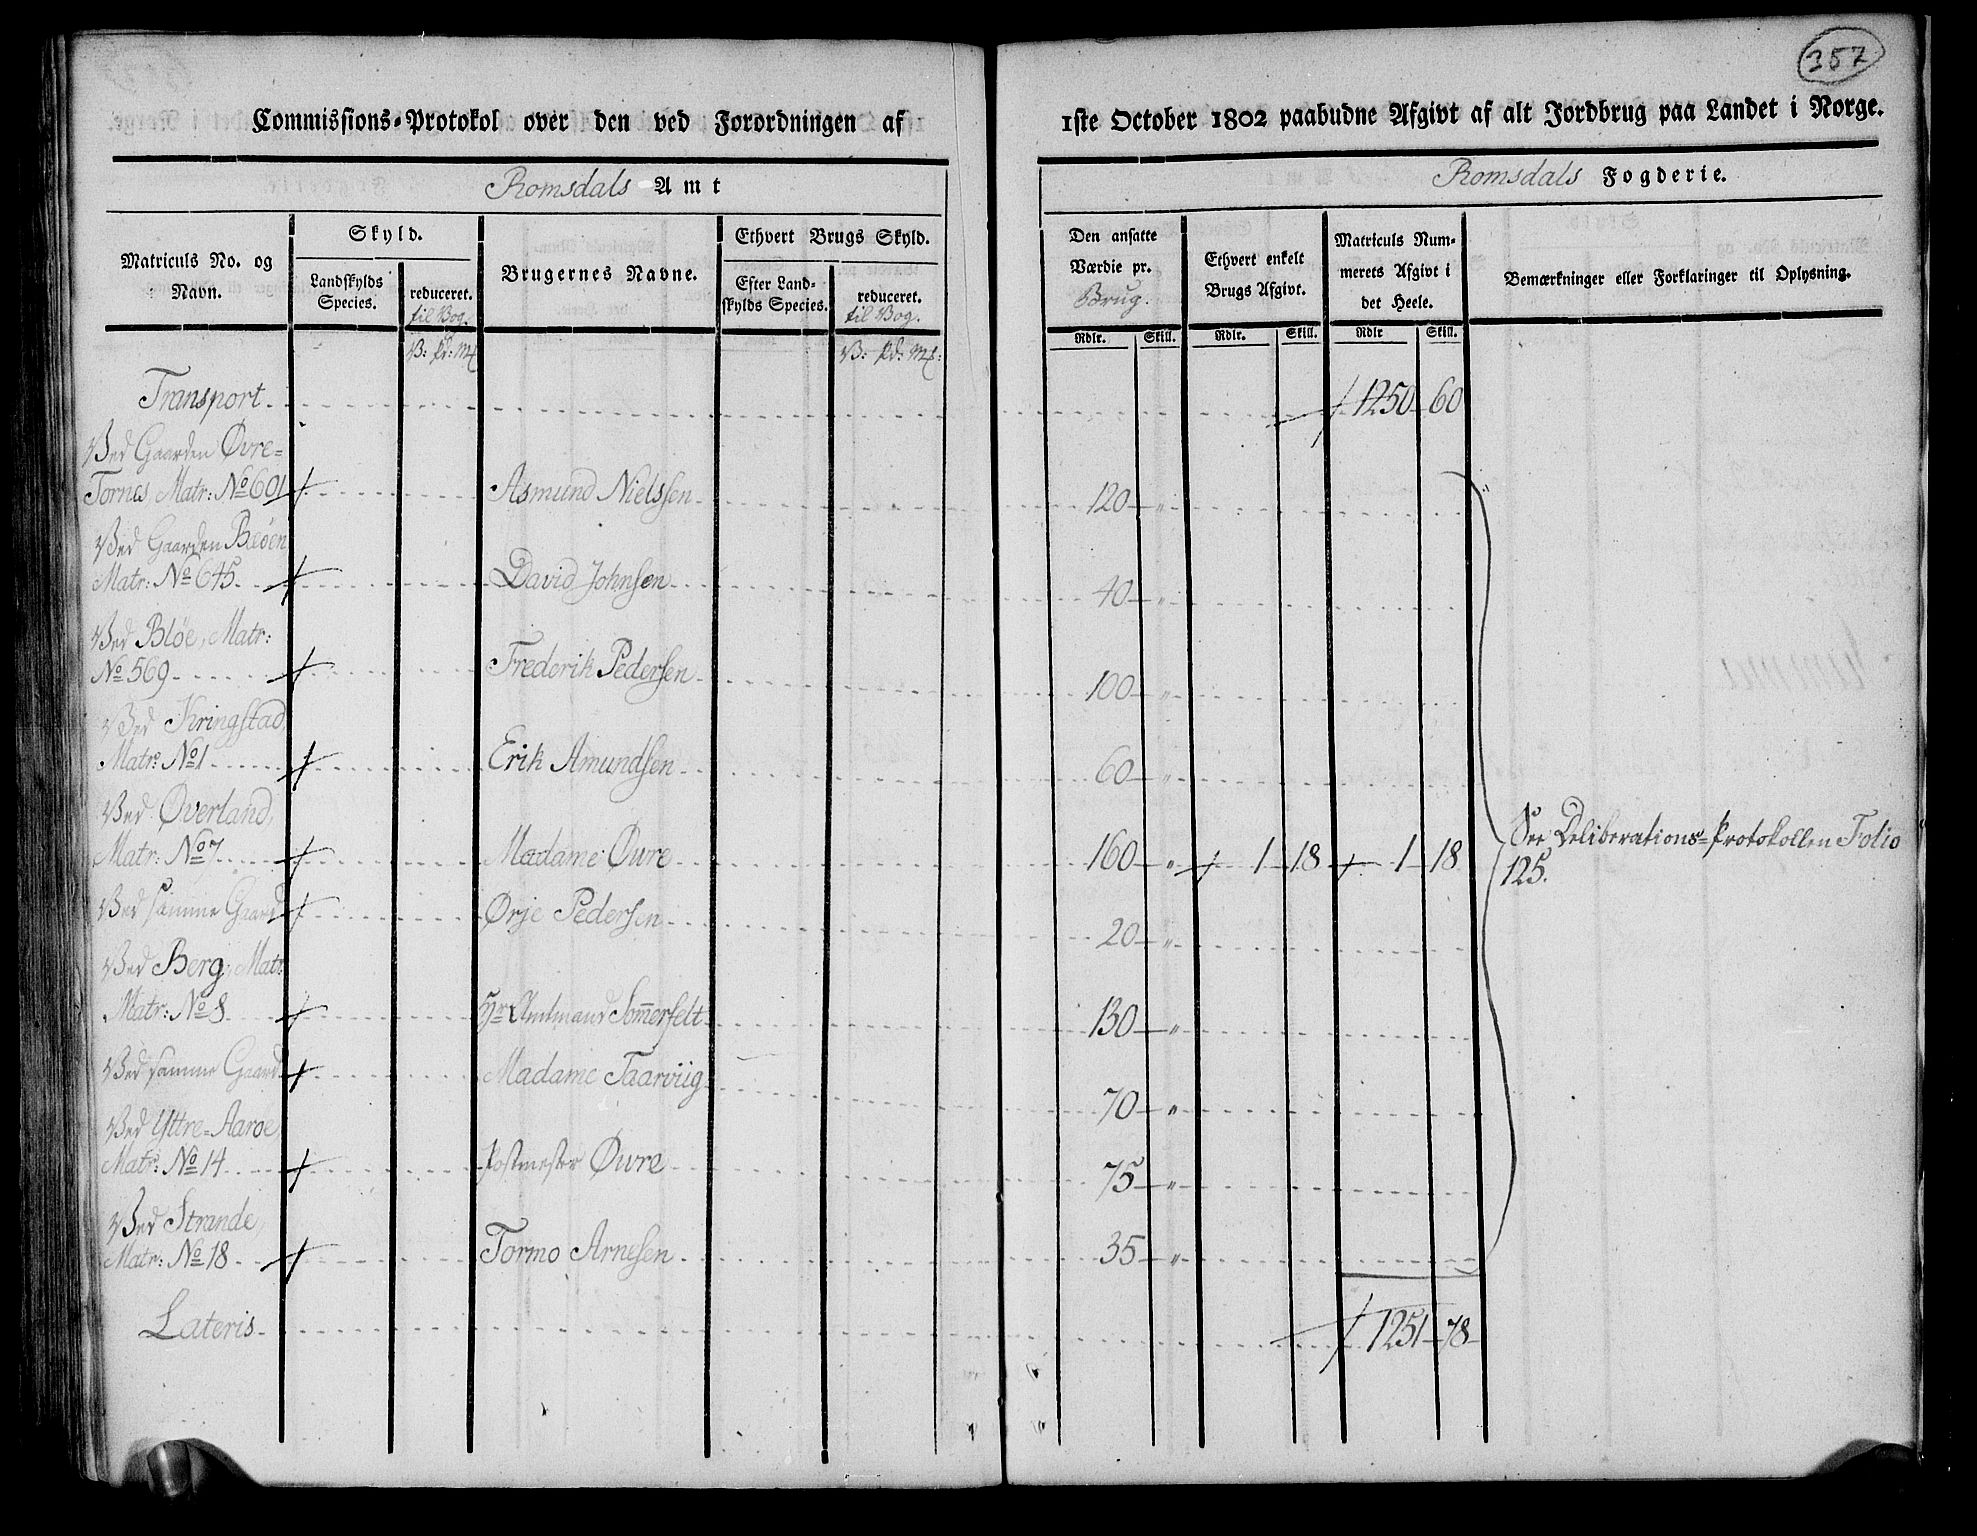 357
Commissions-Protokol over den ved Forordningen af 1ste October 1802 paabudne Afgivt af alt Jordbrug paa Landet i Norge.
Romsdals Amt
Romsdals Fogderie.
Matriculs No. og Navn.
Skyld.
Landskylds Species.
reduceret. til Bog.
Brugernes Navne.
Ethvert Brugs Skyld.
Efter Landskylds Species.
reduceret. til Bog.
Den ansatte Værdie pr. Brug.
Ethvert enkelt Brugs Afgivt.
Matriculs Nummerets Afgivt i det Heele.
Bemærkninger eller Forklaringer til Oplysning.
Rdlr. Skill. Rdlr. Skill. Rdlr Skill.
V: Pd: Mk V: Pd: Mk:
Transport 1250 60
Ved Gaarden Øvre=
Tornes Matr: No 601 Asmund Nielssen 120 "
Ved Gaarden Bløen
Matr: No 645 David Johnsen 40 "
Ved Bløe, Matr:
No 569 Frederik Pedersen 100 "
Ved Kringstad,
Matr: No 1 Erik Amundsen 60 "
Ved Øverland,
Matr: No 7 Madame Øvre 160 " 1 18 1 18
See Deliberations=Protokollen Folio
125.
Ved samme Gaard Ørje Pedersen 20 "
Ved Berg, Matr:
Matr: No 8 Hr Amtmand Sommerfelt 130 "
Ved samme Gaard Madame Taarviig 70 "
Ved Yttre=Aaroe,
Matr: No 14 Postmester Øvre 75 "
Ved Strande,
Matr: No 18 Tormo Arnesen 35 "
Lateris 1251 78